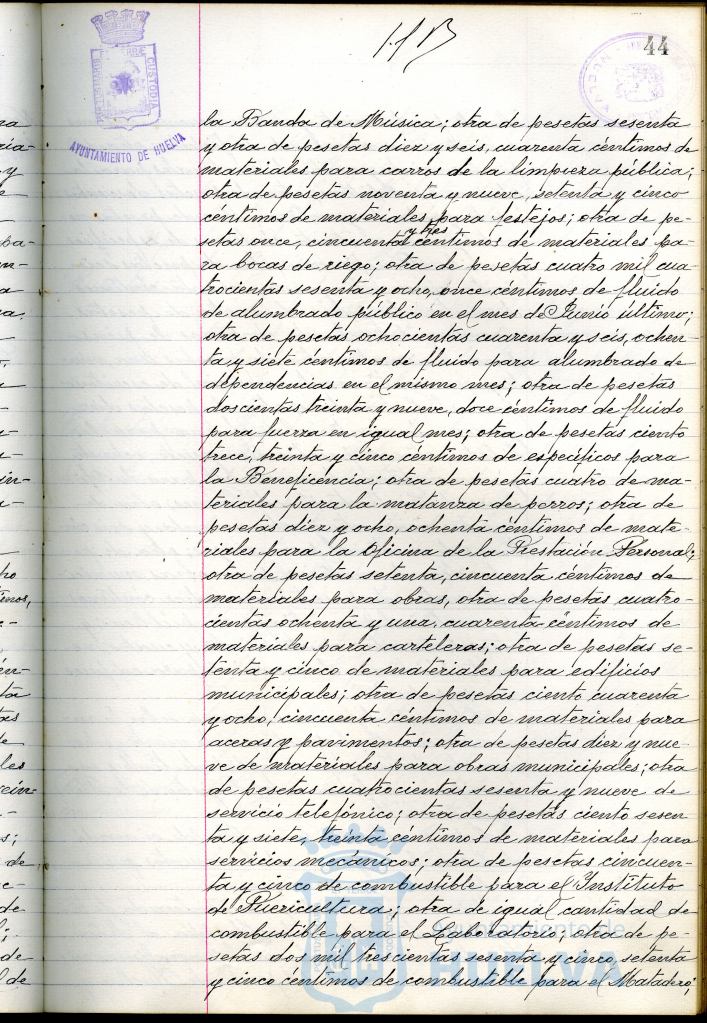 44
AYUNTAMIENTO DE HUELVA
la Banda de Música; otra de pesetas sesenta
y otra de pesetas diez y seis, cuarenta céntimos de
materiales para carros de la limpieza pública;
otra de pesetas noventa y nueve, setenta y cinco
céntimos de materiales para festejos; otra de pe-
setas once, cincuenta y tres céntimos de materiales pa-
ra bocas de riego; otra de pesetas cuatro mil cua-
trocientas sesenta y ocho, once céntimos de fluido
de alumbrado público en el mes de Junio último;
otra de pesetas ochocientas cuarenta y seis, ochen-
ta y siete céntimos de fluido para alumbrado de
dependencias en el mismo mes; otra de pesetas
doscientas treinta y nueve, doce céntimos de fluido
para fuerza en igual mes; otra de pesetas ciento
trece, treinta y cinco céntimos de específicos para
la Beneficencia; otra de pesetas cuatro de ma-
teriales para la matanza de perros; otra de
pesetas diez y ocho, ochenta céntimos de mate-
riales para la oficina de la Prestación Personal;
otra de pesetas setenta, cincuenta céntimos de
materiales para obras, otra de pesetas cuatro-
cientas ochenta y una, cuarenta céntimos de
materiales para carteleras; otra de pesetas se-
tenta y cinco de materiales para edificios
municipales; otra de pesetas ciento cuarenta
y ocho, cincuenta céntimos de materiales para
aceras y pavimentos; otra de pesetas diez y nue-
ve de materiales para obras municipales; otra
de pesetas cuatrocientas sesenta y nueve de
servicio telefónico; otra de pesetas ciento sesen-
ta y siete, treinta céntimos de materiales para
servicios mecánicos; otra de pesetas cincuen-
ta y cinco de combustible para el Instituto
de Puericultura; otra de igual cantidad de
combustible para el Laboratorio; otra de pe-
setas dos mil trescientas sesenta y cinco, setenta
y cinco céntimos de combustible para el Matadero;
Ayuntamiento de
HUELVA